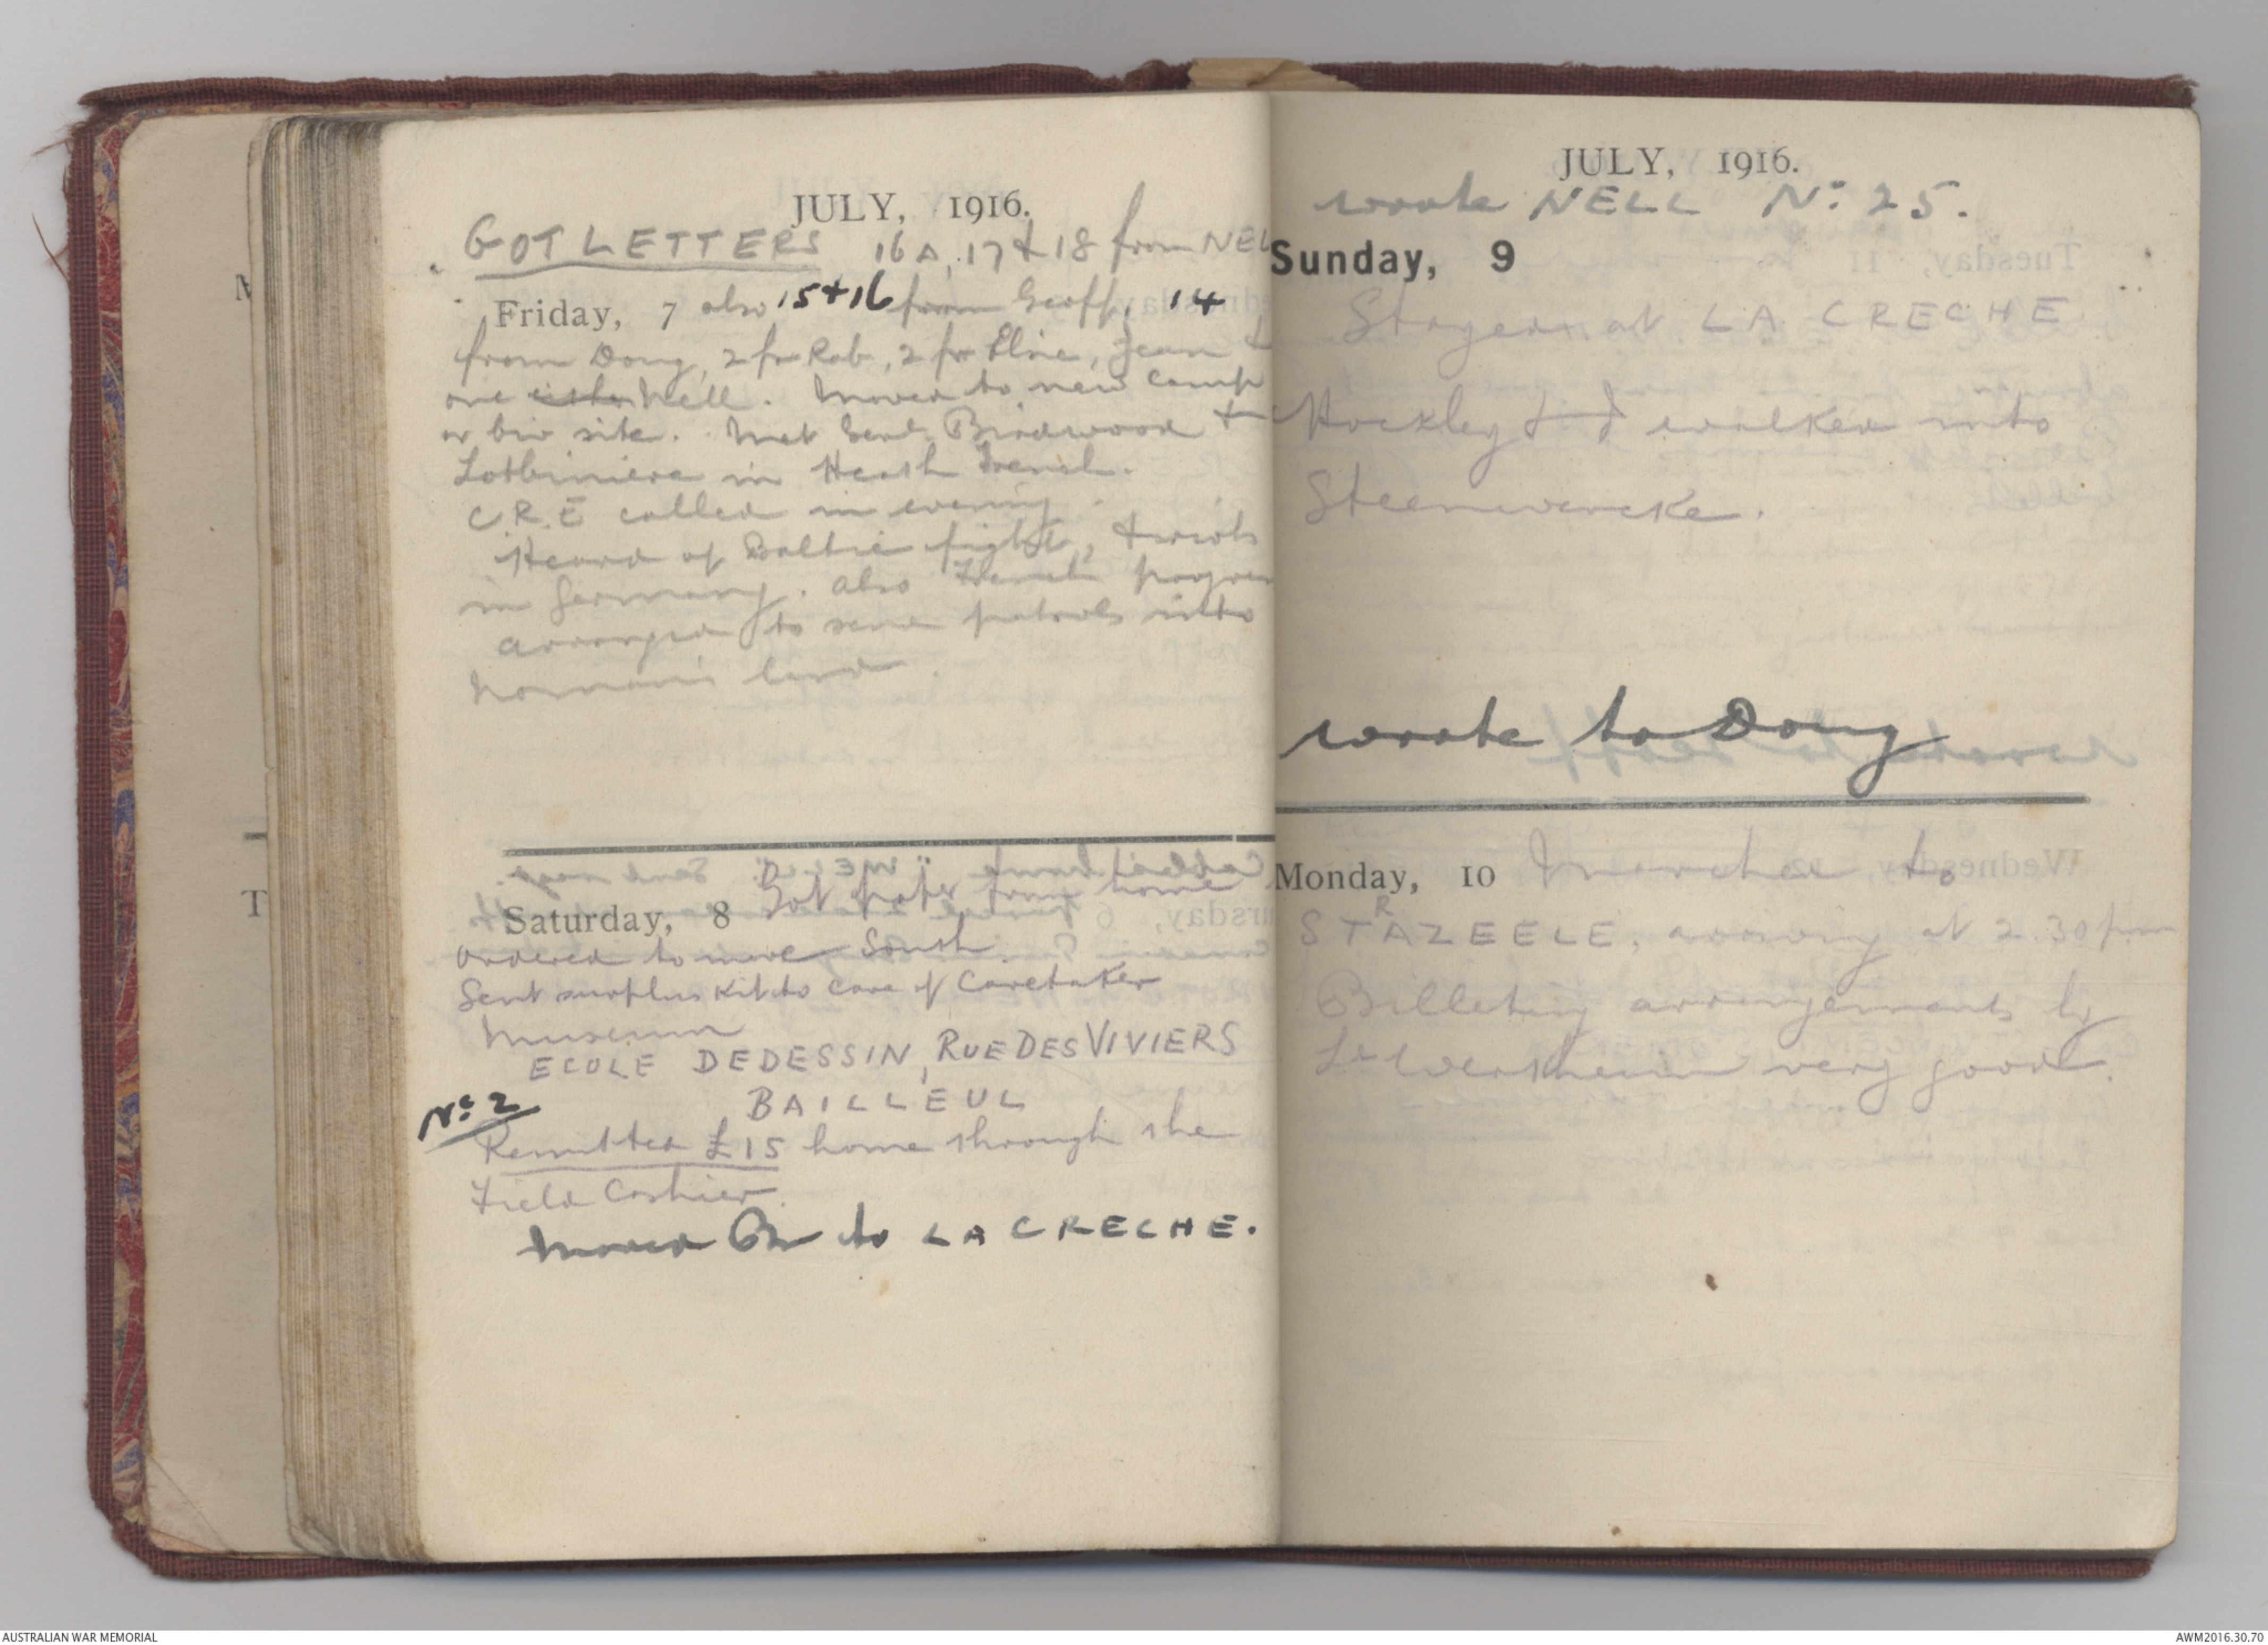 JULY, 1916.
GOT LETTERS 16A, 17 & 18 from NEL
Friday, 7 also 15 + 16 from Geoff, 14
from Doug, 2 fr Rob, 2 fr Elsie, Jean &
one Nell. Moved to new camp
or biv site. Met Genl Birdwood &
Lotbiniere in Heath Trench.
C.R.E called in evening.
Heard of Baltic fight, & riots
in Germany. Also French progress
arranged to send patrols into
Noman's land.
Saturday, 8 Got papers from home
Ordered to move South.
Sent surplus kit to care of Caretaker
Museum
ECOLE DEDESSIN, RUE DES VIVIERS
BAILLEUL
No 2
Remitted £15 home through the
Field Cashier.
Moved Bn to LA CRECHE.
JULY, 1916.
wrote NELL No 25.
Sunday, 9
Stayed at LA CRECHE
Hockley & I walked into
Steenwercke.
wrote to Doug
Monday, 10 Marched to
STRAZEELE, arriving at 2.30 pm
Billeting arrangements by
Lt Wertheim very good.
AUSTRALIAN WAR MEMORIAL
AWM2016.30.70